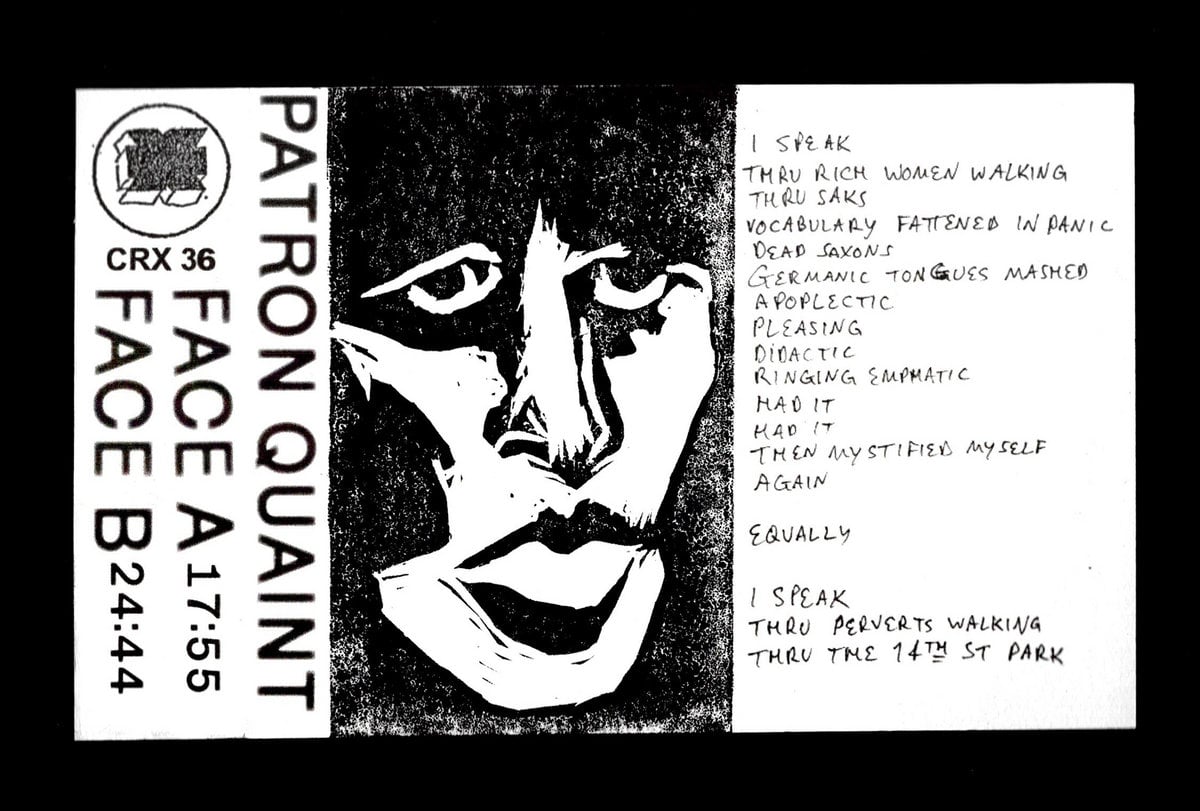 CRX 36
PATRON QUAINT
FACE A 17:55
FACE B 24:44
I SPEAK
THRU RICH WOMEN WALKING
THRU SAKS
VOCABULARY FATTENED IN PANIC
DEAD SAXONS
GERMANIC TONGUES MASHED
APOPLECTIC
PLEASING
DIDACTIC
RINGING EMPHATIC
HAD IT
HAD IT
THEN MYSTIFIED MYSELF
AGAIN
EQUALLY
I SPEAK
THRU PERVERTS WALKING
THRU THE 14TH ST PARK